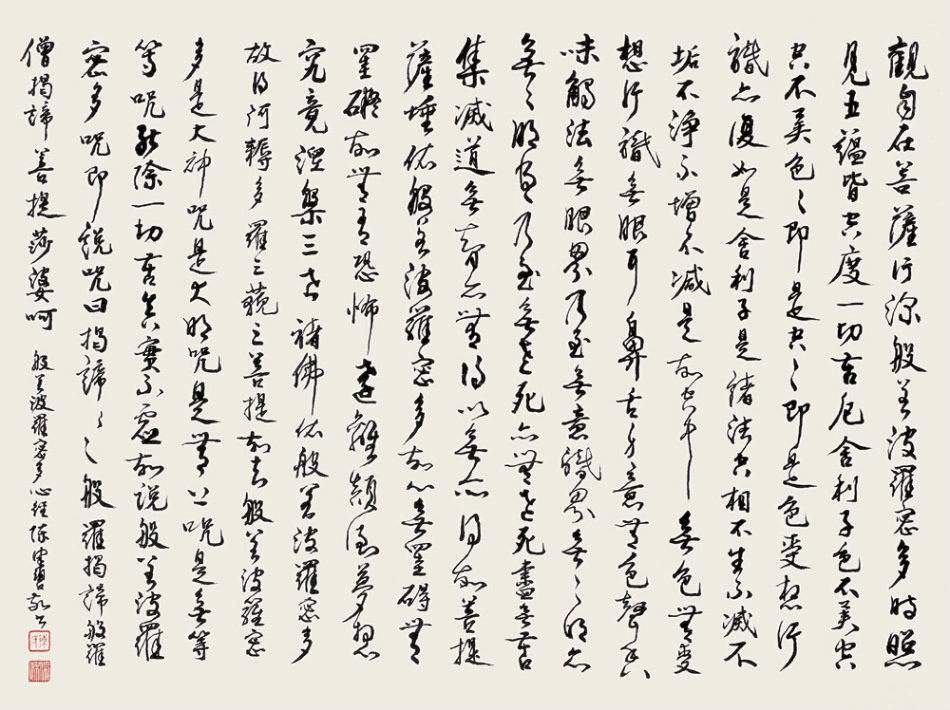 觀自在菩薩行深般若波羅密多時照
見五蘊皆空度一切苦厄舍利子色不異空
空不異色々即是空々即是色受想行
識亦復如是舍利子是諸法空相不生不滅不
垢不淨不增不減是故空中無色無受
想行識無眼耳鼻舌身意無色聲香
味觸法無眼界乃至無意識界無々明亦
無々明盡乃至無老死亦無老死盡無苦
集滅道無智亦無得以無所得故菩提
薩埵依般若波羅密多故心無罣碍無
罣礙故無有恐怖遠離顛倒夢想
究竟涅槃三世諸佛依般若波羅密多
故得阿耨多羅三藐三菩提故知般若波羅密
多是大神咒是大明咒是無上咒是無等
等咒能除一切苦真實不虛故說般若波羅
密多咒即說咒曰揭諦々々般羅揭諦般羅
僧揭諦菩提莎婆呵 般若波羅密多心經 陳